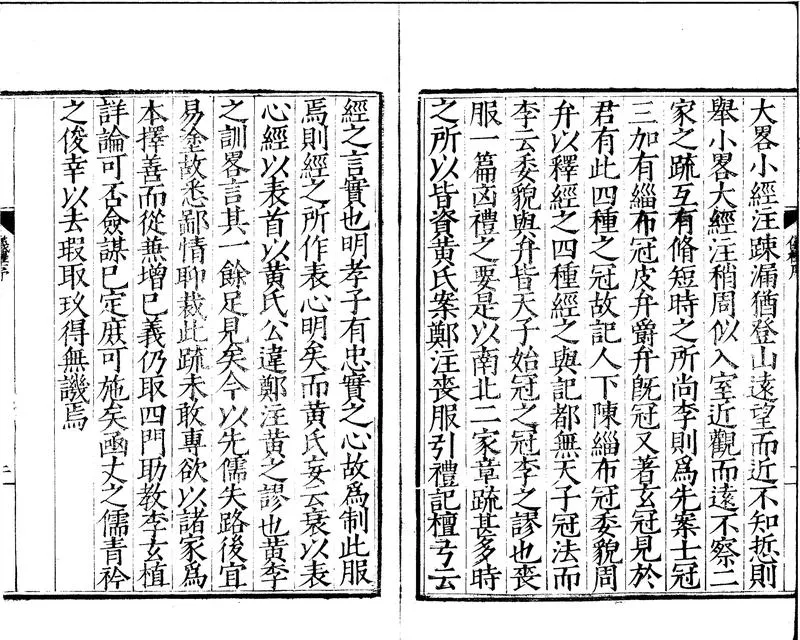 大畧小經注踈漏猶登山遠望而近不知悊則
舉小畧大經注稍周似入室近觀而遠不察二
家之疏互有脩短時之所尚李則爲先案士冠
三加有緇布冠皮弁爵弁旣冠又著玄冠見於
君有此四種之冠故記人下陳緇布冠委貌周
弁以釋經之四種經之與記都無天子冠法而
李云委貌與弁皆天子始冠之冠李之謬也喪
服一篇凶禮之要是以南北二家章疏甚多時
之所以皆資黄氏案鄭注喪服引禮記檀弓云
經之言實也明孝子有忠實之心故爲制此服
焉則經之所作表心明矣而黄氏妄云衰以表
心經以表首以黄氏公違鄭注黄之謬也黄李
之訓畧言其一餘足見矣今以先儒失路後宜
易金故悉鄙情聊裁此疏未敢專欲以諸家爲
本擇善而從兼增巳義仍取四門助教李玄植
詳論可否僉謀巳定庶可施矣函丈之儒青衿
之俊幸以去瑕取玖得無譏焉